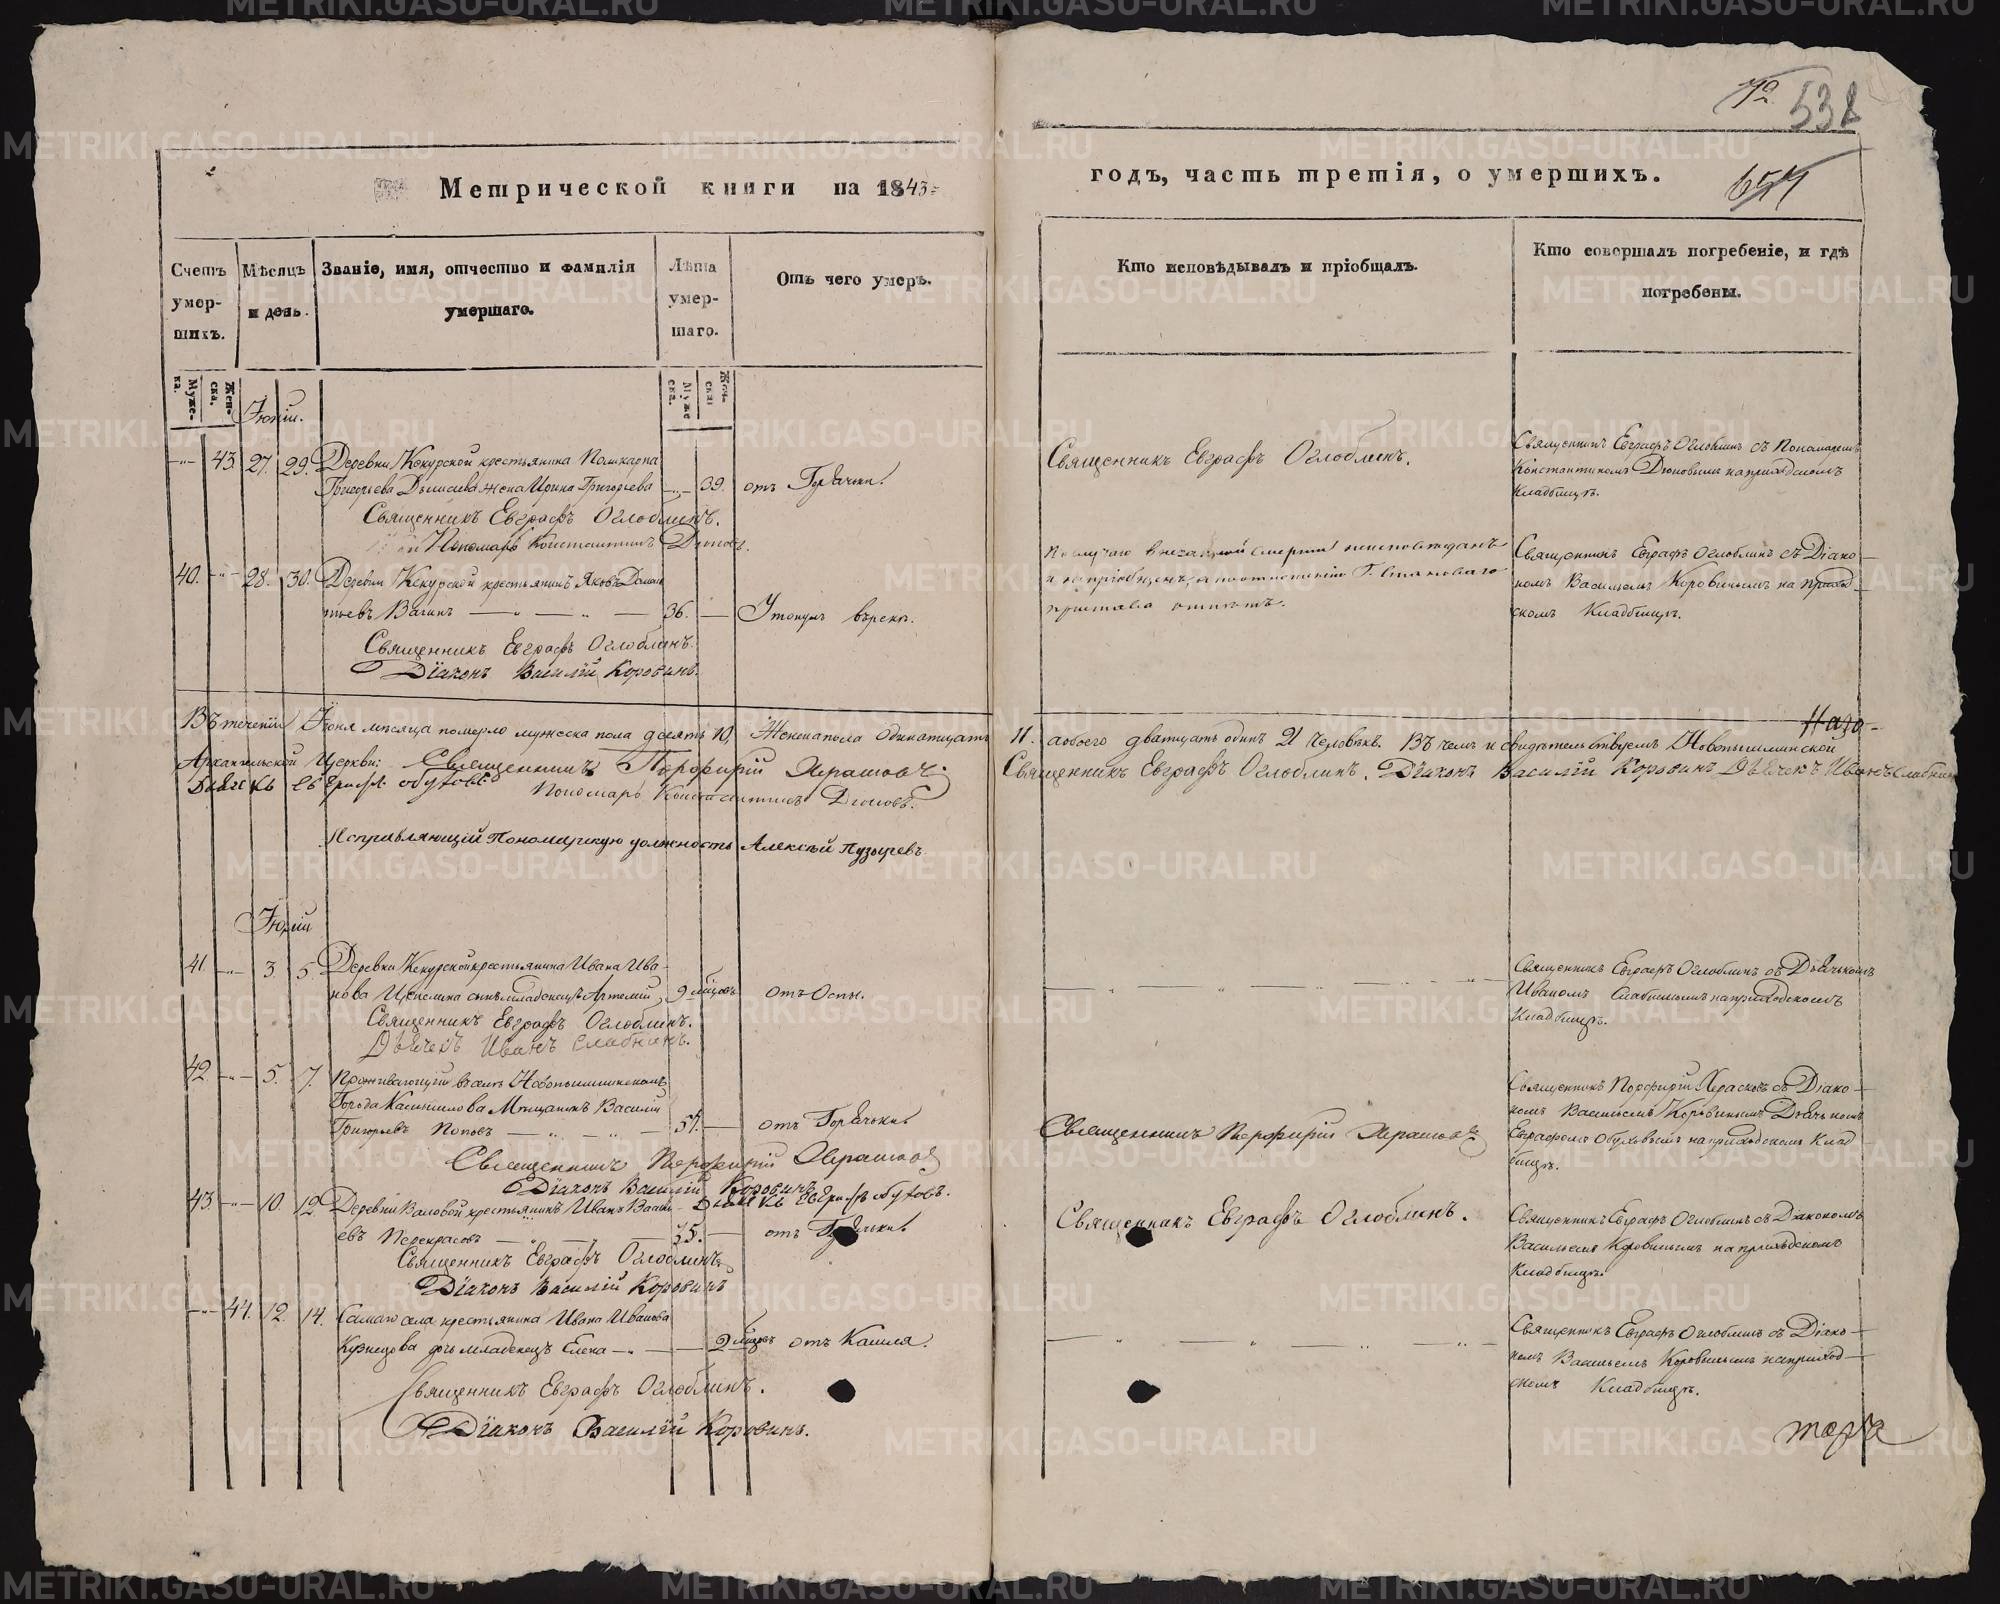 538
Метрической книги на 1843
годъ, часть третія, о умершихъ.
Счетъ умер-шихъ.
Мѣсяцъ и день.
Званіе, имя, отчество и фамилія умершаго.
Лѣта умер-шаго.
Отъ чего умеръ.
Кто исповѣдывалъ и пріобщалъ.
Кто совершалъ погребеніе, и гдѣ погребены.
Муже-ка.
Жен-ска.
Муже ска.
Жен-ски
43. 27. 29. Деревни Кекурской крестьянина Поликарпа
Григорьева жена Ирина Григорьева 39. отъ Горячки.
Священникъ Евграфъ Оглоблинъ.
Пономарь Константинъ
Священникъ Евграфъ Оглоблинъ.
Священникъ Евграфъ Оглоблинъ съ Пономаремъ
Константиномъ на приходскомъ
Кладбищѣ.
40. 28. 30. Деревни Кекурской крестьянинъ Яковъ
Вагинъ 36. Утонулъ въ рекѣ.
Священникъ Евграфъ Оглоблинъ.
Діаконъ Василій Коровинъ.
По случаю внезапной смерти неисповѣданъ
и не пріобщенъ, а по отношенію Г. Становаго
пристава отпѣтъ.
Священникъ Евграфъ Оглоблинъ съ Діако-
номъ Васильемъ Коровинымъ на приход-
скомъ Кладбищѣ.
Въ теченіи Іюня мѣсяца померло мужеска пола десять 10, Женска пола одинатцать
11. а обоего дватцать одинъ 21 человѣкъ. Въ чемъ и свидѣтельствуемъ Новопышминской
Архангельской Церкви: Священникъ Порфирій
Священникъ Евграфъ Оглоблинъ. Діаконъ Василій Коровинъ Дьячекъ Иванъ Слабнинъ
Пономарь Константинъ
Исправляющій Пономарскую должность Алексѣй Пузыревъ.
41. 3. 5. Деревни Кекурской крестьянина Ивана Ива-
нова сынъ младенецъ Артемій 9 мѣсяцовъ отъ Оспы.
Священникъ Евграфъ Оглоблинъ.
Дьячекъ Иванъ Слабнинъ.
Священникъ Евграфъ Оглоблинъ съ Дьячькомъ
Иваномъ Слабнинымъ на приходскомъ
Кладбищѣ.
42. 5. 7. Проживающій въ селѣ Новопышминскомъ
Города Камышлова Мещанинъ Василій
Григорьевъ Поповъ 51. отъ Горячьки
Священникъ Порфирій
Діаконъ Василій Коровинъ
Священникъ Порфирій
Священникъ Порфирій съ Діако-
номъ Васильемъ Коровинымъ Дьячькомъ
Евграфомъ на приходскомъ Клад
бищѣ.
43. 10. 12. Деревни Валовой крестьянинъ Иванъ Василь-
евъ Перекрасовъ 35. отъ Горячьки.
Священникъ Евграфъ Оглоблинъ
Діаконъ Василій Коровинъ
Священникъ Евграфъ Оглоблинъ.
Священникъ Евграфъ Оглоблинъ съ Діакономъ
Васильемъ Коровинымъ на приходскомъ
Кладбищѣ.
44. 12. 14. Самаго села крестьянина Ивана Иванова
Кузнецова дочь младенецъ Елена 9 мѣсяцовъ отъ Кашля.
Священникъ Евграфъ Оглоблинъ.
Діаконъ Василій Коровинъ.
Священникъ Евграфъ Оглоблинъ съ Діако-
номъ Васильемъ Коровинымъ на приход-
скомъ Кладбищѣ.
METRIKI.GASO-URAL.RU